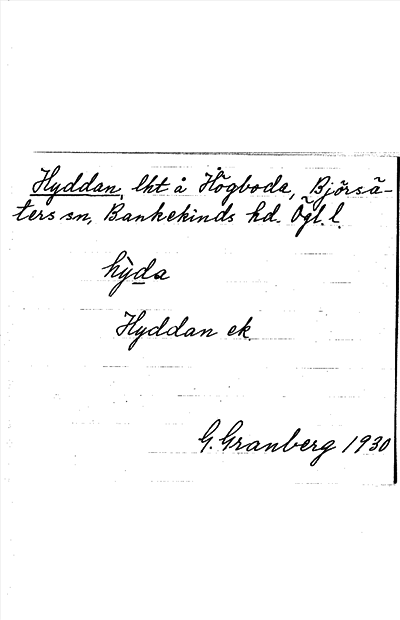 Hyddan, lht å Högboda, Björsä-
ters sn, Bankekinds hd. Ögl. l.
hỳda
Hyddan ek.
G. Granberg 1930